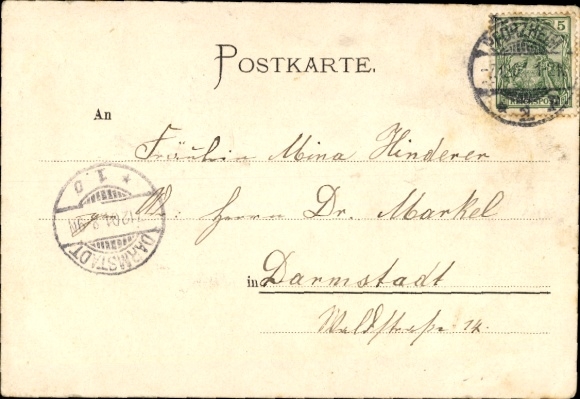 5
PFORZHEIM
POSTKARTE.
An
Fräulein Mina Hinderer
W: Herrn Dr. Markel
in Darmstadt
Waldstraße 14.
DARMSTADT
* 1. 0
REICHSPOST